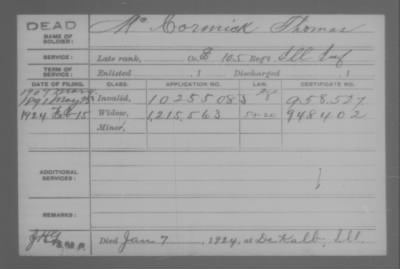 DEAD
Mc Cormick Thomas
NAME OF SOLDIER:
SERVICE: Late rank, Co. E 105 Reg't Ill Inf
TERM OF SERVICE: Enlisted , 1 Discharged , 1
DATE OF FILING. CLASS. APPLICATION NO. LAW. CERTIFICATE NO.
1907
1891 May Invalid, 1025508 958.527
1924 15 Widow, 1,215,563 948402
Minor,
ADDITIONAL SERVICES:
REMARKS:
Died Jan 7, 1924, at De Kalb, Ill.